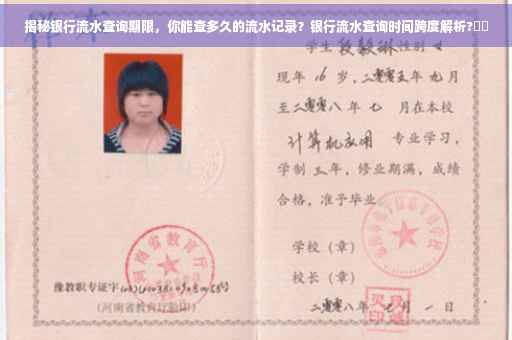 揭秘银行流水查询期限，你能查多久的流水记录？银行流水查询时间跨度解析?
学生段毅琳性别女
现年16岁，二零零五年九月
至二零零八年七月在本校
计算机应用 专业学习，
学制三年，修业期满，成绩
合格，准予毕业
学校（章）
校长（章）
二零零八年七月一日
河南省教育厅
豫教职专证字
(河南省教育厅验印)